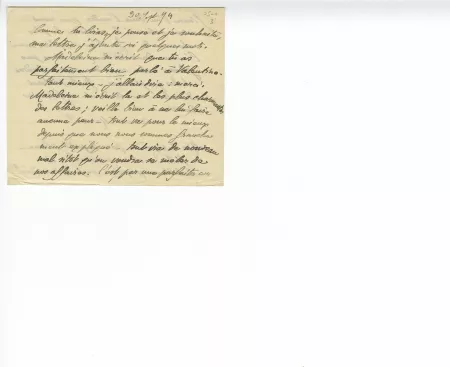 20 Sept 94
Comme tu liras, je pense et je souhaite,
ma lettre, j'ajoute ici quelques mots.
Madeleine m'écrit que tu as
parfaitement bien parlé à Valentine.
Tout mieux. j'allais dire : merci.
Madeleine m'écrit là et les plus charmantes
des lettres ; veille bien à ne lui faire
aucune peur. Tout va pour le mieux
depuis que nous nous sommes franche
ment expliqués. Tout ira de nouveau
mal sitôt qu'on voudra se mêler de
nos affaires. C'est par une parfaite